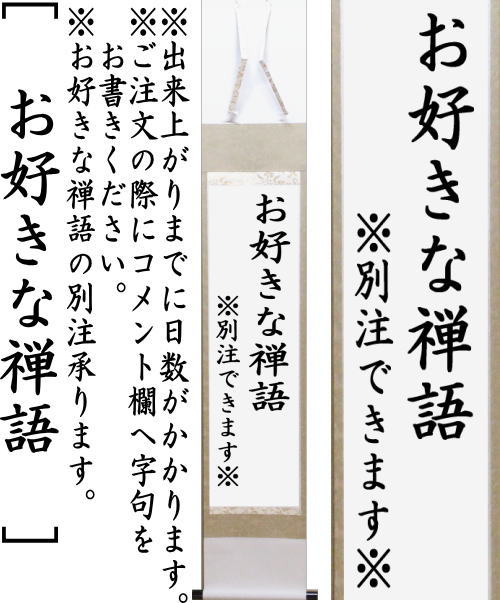 お好きな禅語
※別注できます※
お好きな禅語
※別注できます※
※出来上がりまでに日数がかかります。
※ご注文の際にコメント欄へ字句を
お書きください。
※お好きな禅語の別注承ります。
[お好きな禅語]